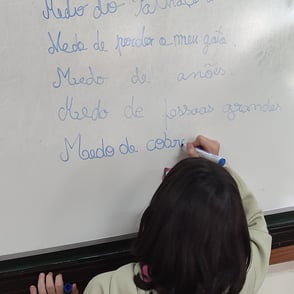 Medo do palhaço
Medo de perder o meu gato.
Medo de anões.
Medo de pessoas grandes
Medo de cobr